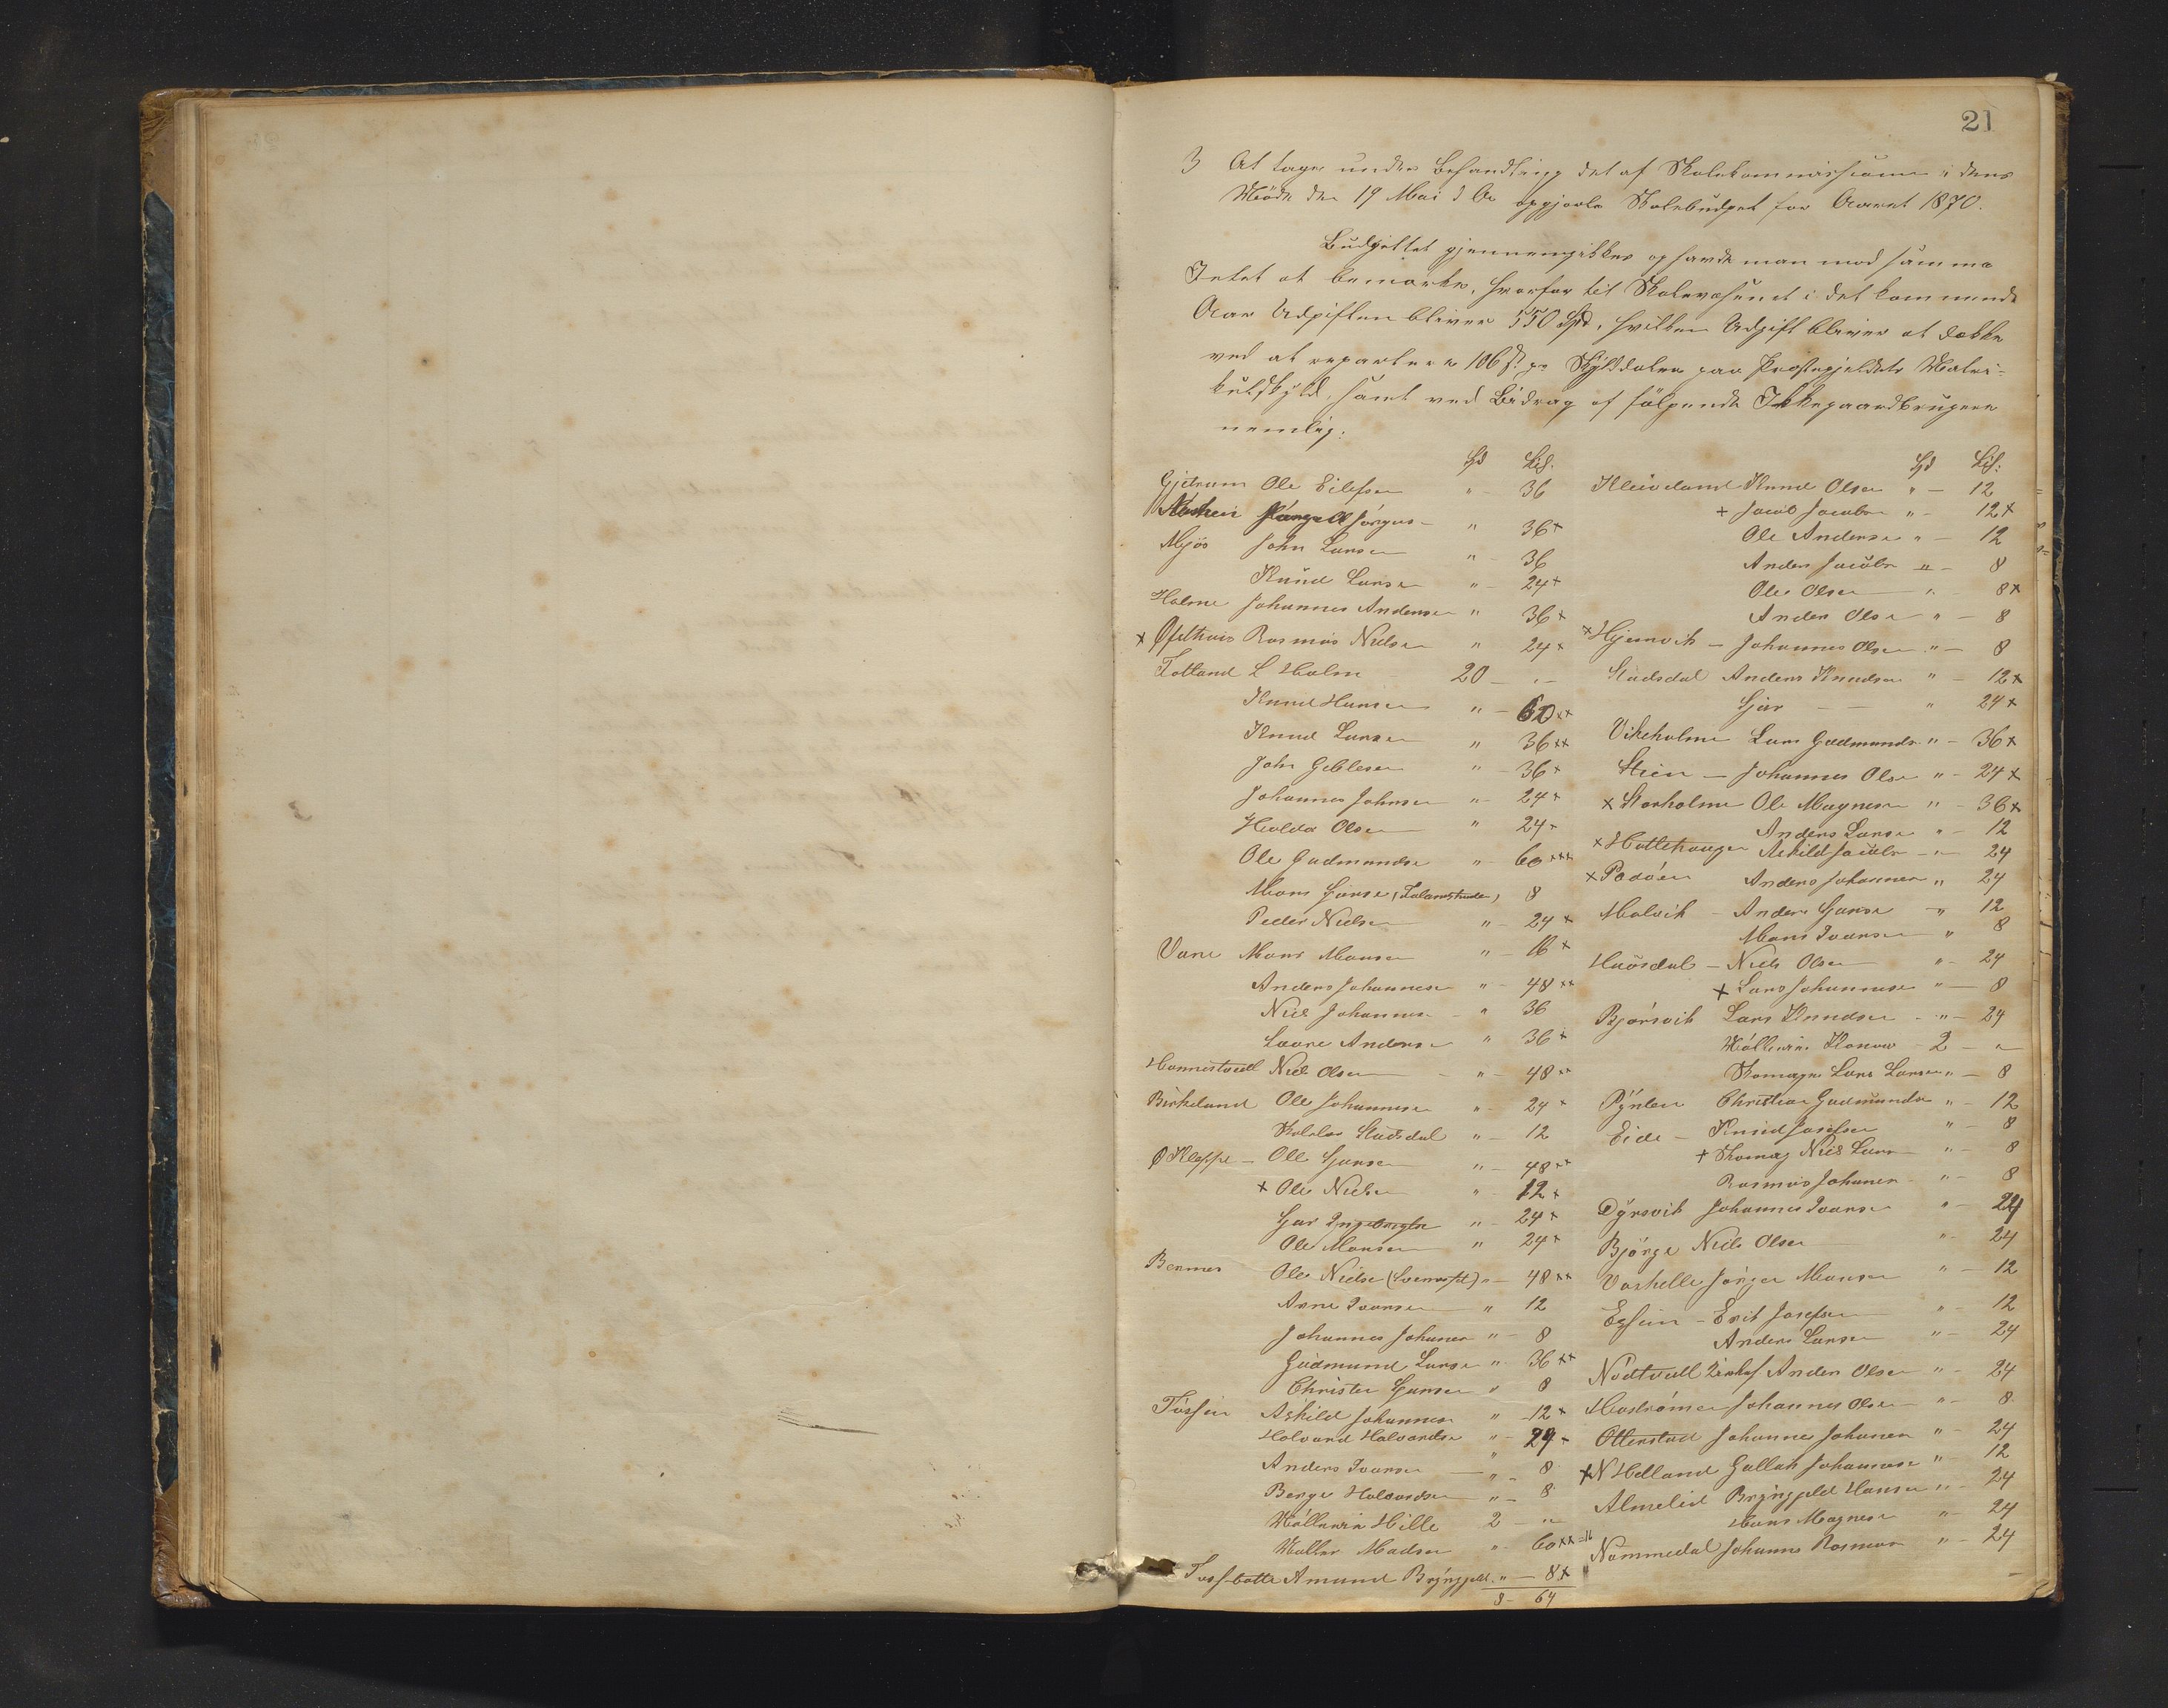 21
3 At tage under Behandling det af Skolekommissionen i dens
Møde den 19 Mai d A opgjorte Skolebudget for Aaret 1870.
Budgettet gjennemgikkes og havde man mod samme
Intet at bemærke, hvorfor til Skolevæsenet i det kommende
Aar Udgiften bliver 550 Spd, hvilken Udgift bliver at dække
ved at repartere 106 s. pr Skylddaler paa Præstegjeldets Matri-
kulskyld, samt ved Bidrag af følgende Ikkegaardbrugere
nemlig:
Spd Skil.
Gjerum Ole Eilefsen " 36
" 36+
Mjøs John Larsen " 36
Knud Larsen " 24+
Holme Johannes Andersen " 36+
+ Øfsthuus Rasmus Nielsen " 24+
Totland L Holm 20 - " -
Knud Hansen " - 60++
Knud Larsen " 36++
John Geblesen " - 36+
Johannes Johnsen " - 24+
Haldor Olsen " 24+
Ole Gudmundsen " - 60+++
Mons Gjørse 8
Peder Nielsen " - 24+
Vane Mons Monsen " - 16+
Anders Johannesen " - 48++
Niels Johannesen " 36
Laure Andersen " 36+
Hannestvedt Niels Olsen " - 48++
Birkeland Ole Johannesen " - 24+
Stadsdal " - 12
Ø Kleppe - Ole Gjørsen " - 48++
+ Ole Nielsen " - 12+
Gjør Ingebrigtsen " - 24+
Ole Monsen " 24+
Bermes Ole Nielsen " - 48++
Arne Iversen " 12
Johannes Johannesen " - 8
Gudmund Larsen " 36++
Christen Gjørsen " 8
Askild Johannesen " - 12+
Halvard Halvardsen " - 24+
Anders Iversen " - 8
Børge Halvardsen " - 8
Møllerin Hille 2 - " -
Møller Madsen " - 60++
Amund Brynjeld. " - 8+
8 - 64
Spd Skil:
Kleiveland Knud Olsen " - 12
+ Jacob Jacobsen " - 12+
Ole Andersen " - 12
Anders Jacobsen " - 8
Ole Olsen " - 8+
Anders Olsen " - 8
+ Hjemvik - Johannes Olsen " - 8
Stadsdal Anders Knudsen " - 12+
Gjør - - " 24+
Vikeholme Lars Gudmunds " - 36+
Steen - Johannes Olsen " - 24+
+ Storholme Ole Magnesen " - 36+
Anders Larsen " - 12
+ Askild Jacobsen - " - 24
+ Anders Johannesen " 24
Molvik - Anders Gjørsen " 12
Mons Iversen " 8
Huusdal - Niels Olsen " - 24
+ Lars Johannesen " - 8
Bjørsvik Lars Knudsen - " - 24
Møllerin Konow - 2 - " -
Skomager Lars Larsen " - 8
Pynten Christian Gudmundsen " - 12
Eide - Knud Josefsen " - 8
+ Skomag Niels Larsen " - 8
Rasmus Johannesen " - 8
Dyrsvik Johannes Iversen " - 24
Bjørge Niels Olsen " - 24
Vaskelle Jørgen Monsen " - 12
- Erik Josefsen " - 12
Anders Larsen " - 24
Nødtvedt Anders Olsen " - 24
Johannes Olsen " - 8
Otterstad Johannes Johannesen " - 24
+ N Helland Gullak Johannesen " 12
Almelid Brynjeld Hansen " - 24
Hans Magnesen " - 24
Nommedal Johannes Rasmusen " - 24